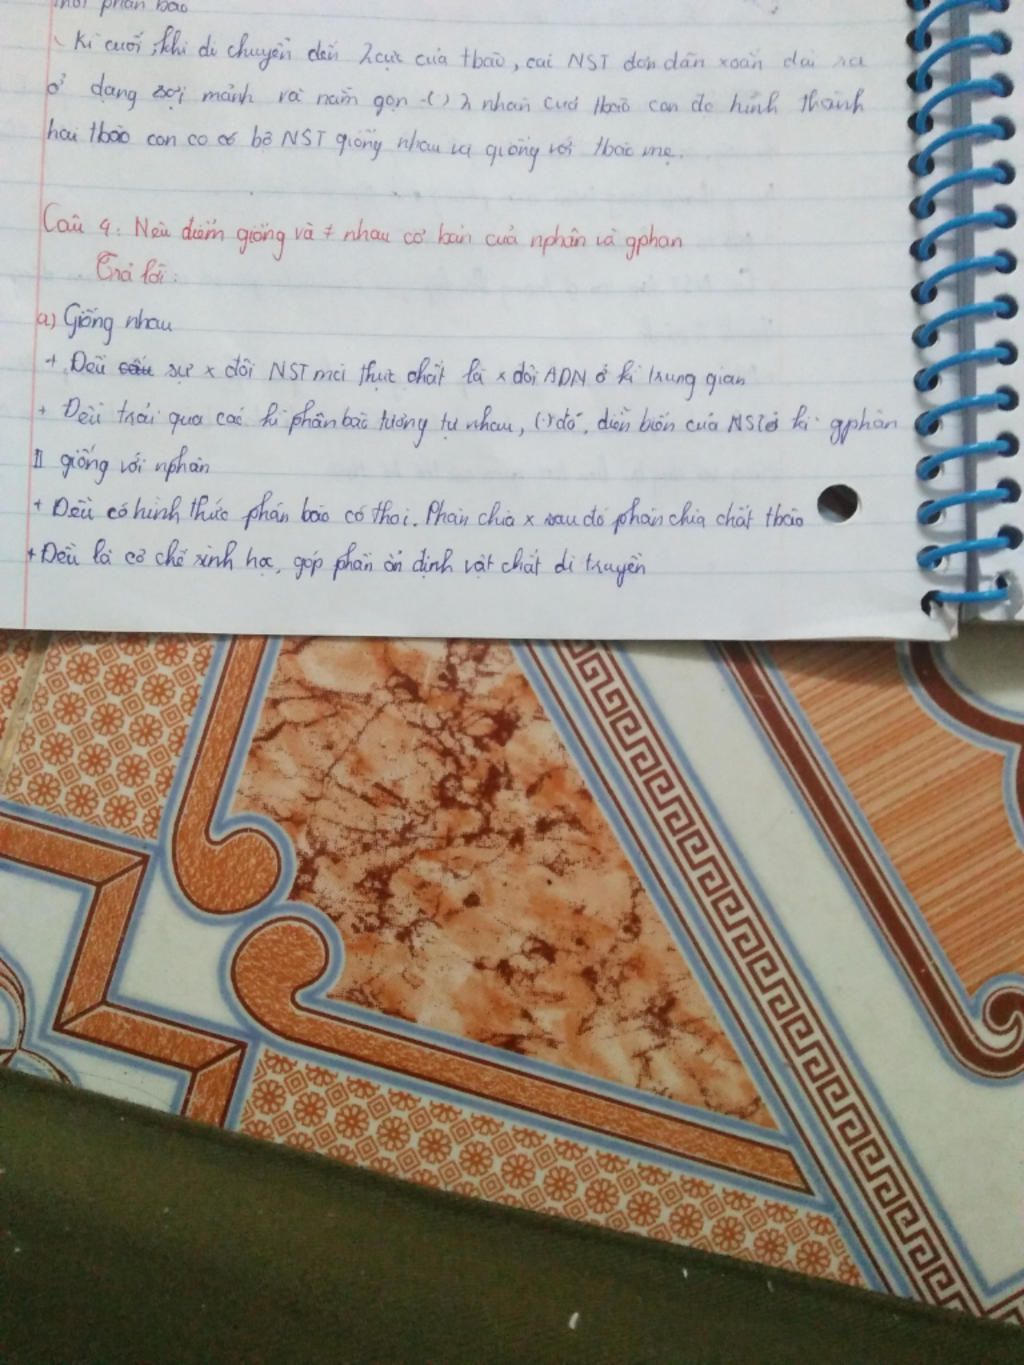 mỗi phân bào
- Kì cuối, khi di chuyển đến 2 cực của tbào, cái NST đơn dãn xoắn dài ra
ở dạng sợi mảnh và nằm gọn -( ) 2 nhân cuả tbào con đc hình thành
hai tbào con co có bộ NST giống nhau và giống với tbào mẹ.
Câu 4: Nêu điểm giống và ≠ nhau cơ bản cuả nphân và gphân
Trả lời:
a) Giống nhau
+ Đều sự x đôi NST mà thực chất là x đôi ADN ở kì trung gian
+ Đều trải qua các kì phân bào tương tự nhau, (·) đó, diễn biến cuả NST ở kì gphân
II giống với nphân
+ Đều có hình thức phân bào có thoi. Phân chia x sau đó phân chia chất tbào
+ Đều là cơ chế sinh học, góp phần ổn định vật chất di truyền